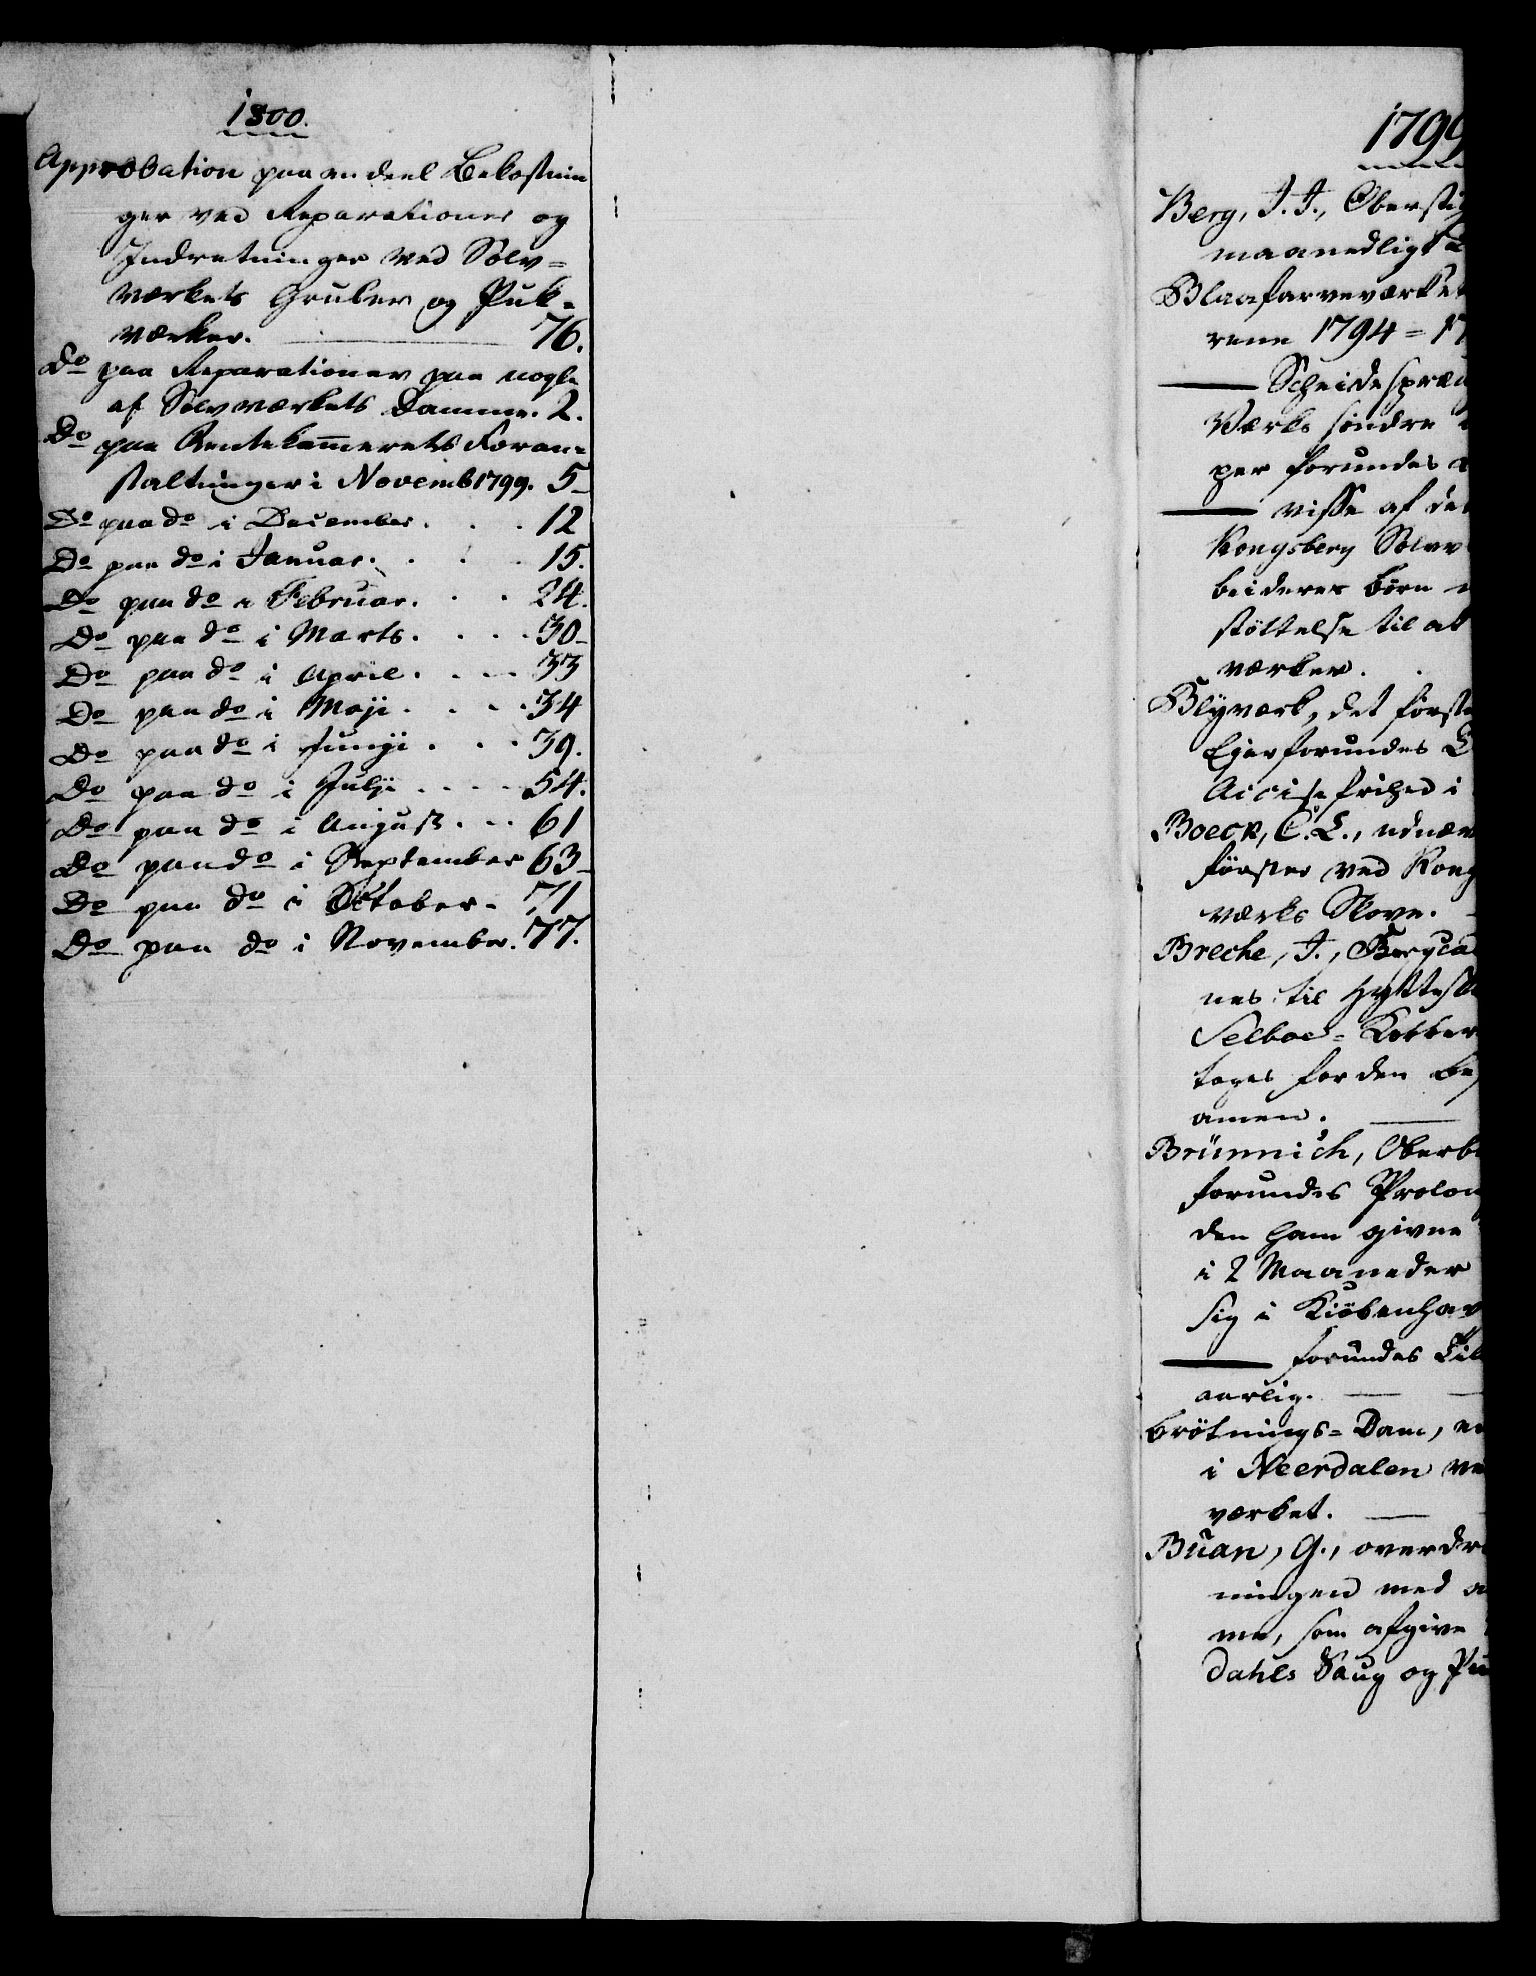 1800.
Approbation paa en deel Bekostnin
ger ved Reparationer og
Indretninger ved Sölv=
værkets Gruber og Puk=
værker. 76.
Do paa Reparationer paa nogle
af Sölvværkets Damme. 2.
Do paa Rentekam̅erets Foran=
staltninger i Novemb 1799. 5
Do paa do i December. 12
Do paa do i Januar. 15.
Do paa do i Februar. 24.
Do paa do i Marts. 30
Do paa do i April. 33
Do paa do i Maji. 34
Do paa do i Junji. 39.
Do paa do i Julji. 54.
Do paa do i August. 61
Do paa do i September 63
Do paa do i October. 71
Do paa do i November. 77.
1799
Berg, J. J., Oberstig
maanedligt
Blaafarveværket
rene 1794 = 17
Scheidespræn
Værks söndre
per forundes
visse af de
Kongsberg Sölvv
beideres börn
stöttelse til at
værker.
Blÿværk, det förste
Ejer forundes
Accise frihed i
Boeck, C. L., udnæv
förster ved Kong
værks Skove.
Breche, J., Bergca
nes til Hytteskr
Selboe= Kobber
tages for den
amen.
Brünnich, Oberb
forundes Prolon
den ham givne
i 2 Maaneder
sig i Kiöbenhav
forundes Til
aarlig.
Brötnings= Dam, en
i Meerdalen ve
værket.
Buan, G., overdr
ningen med
me, som afgive
dahls Saug og Pu